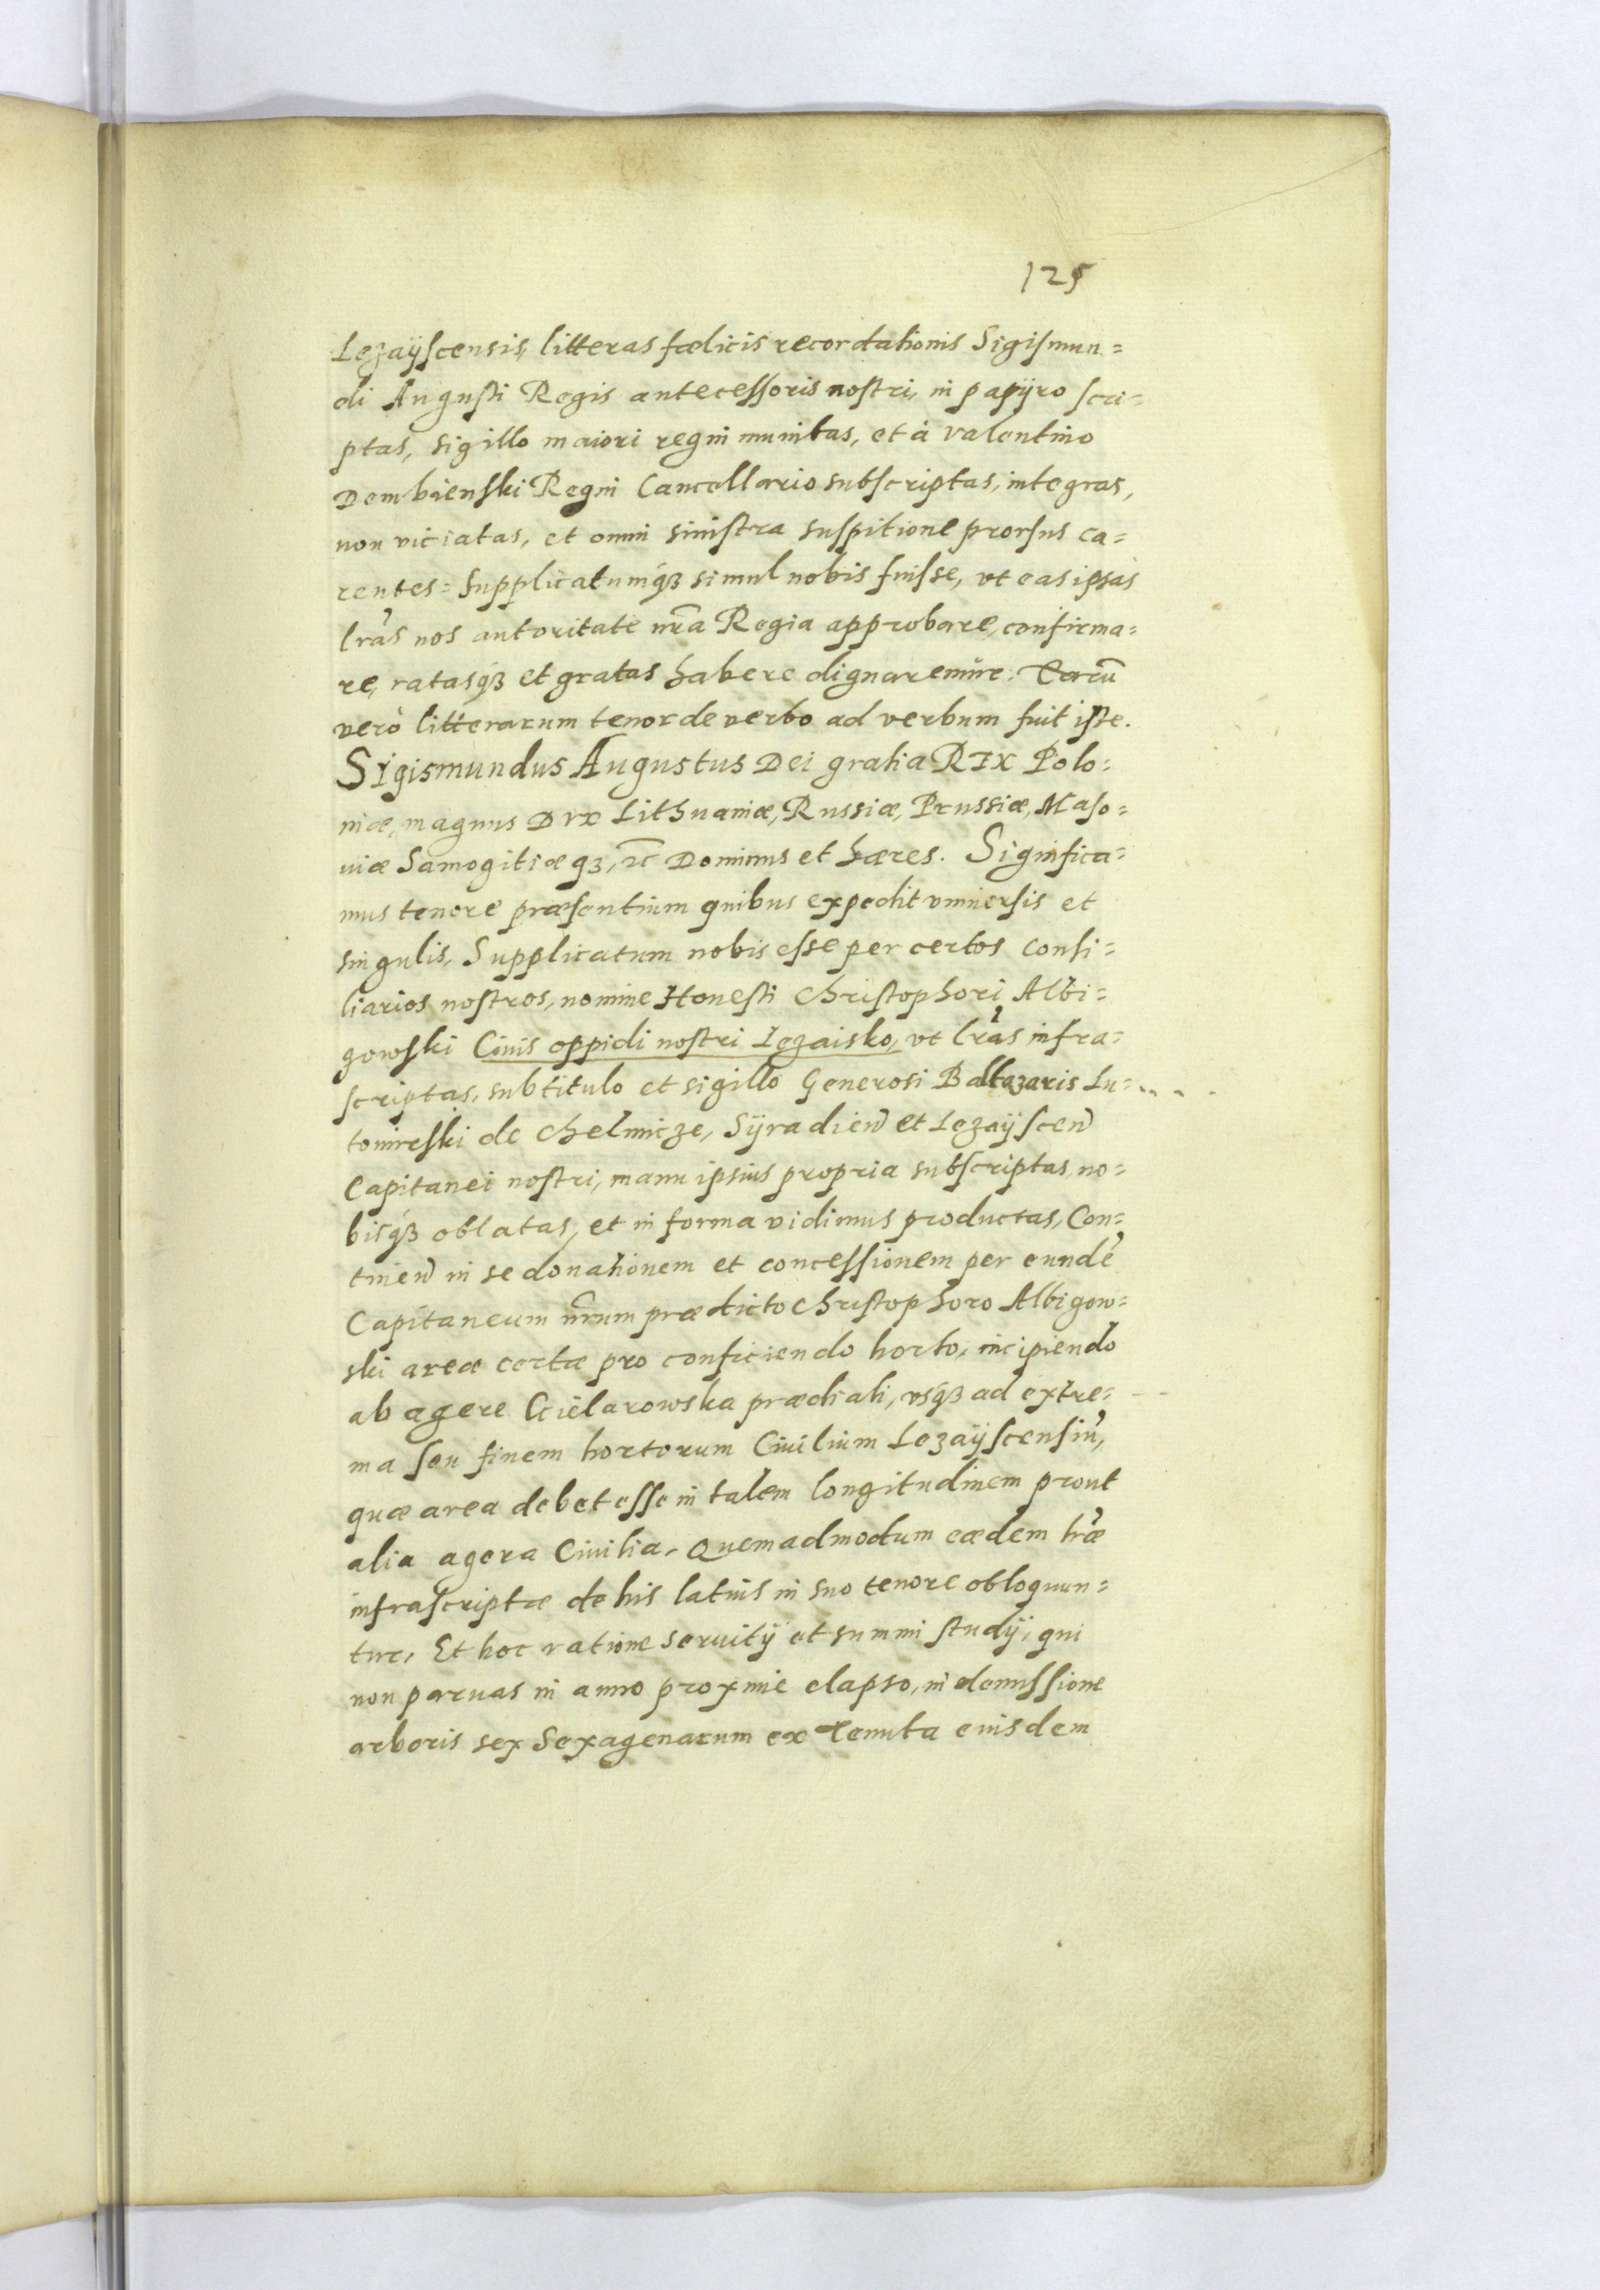 125
Lezaÿscensis, litteras fœlicis recordationis Sigismun=
di Augusti Regis antecessoris nostri, in papÿro scri=
ptas, sigillo maiori regni munitas, et à valentino
Dembienski Regni Cancellario subscriptas, integras,
non viciatas, et omni sinistra suspitione prorsus ca=
rentes: supplicatumq́ꝫ simul nobis fuisse, vt eas ipsas
lr̃as nos autoritate nr̃a Regia approbare, confirma=
re, ratasq́ꝫ et gratas habere dignaremur. Earũ
verò litterarum tenor de verbo ad verbum fuit iste.
Sigismundus Augustus Dei gratia REX Polo=
niæ, magnus Dvx Lithuaniæ, Russiæ, Prussiæ, Maso=
uiæ Samogitiæqꝫ, ꝛc Dominus et hæres. Significa=
mus tenore præsentium quibus expedit vniuersis et
singulis, Supplicatum nobis esse per certos consi=
liarios nostros, nomine Honesti Christophori Albi=
gowski Ciuis oppidi nostri Lezaisko, vt lr̃as infra=
scriptas, sub titulo et sigillo Generosi Baltazaris Lu=
tomirski de Chelmicze, Sÿradien̄ et Lezaÿscen̄
Capitanei nostri, manu ipsius propria subscriptas, no=
bisq́ꝫ oblatas, et in forma vidimus productas, Con=
tinen̄ in se donationem et concessionem per eundẽ
Capitaneum nr̃um prædicto Christophoro Albigow=
ski areæ certæ pro conficiendo horto, incipiendo
ab agere Cielarowska prædiali, vsq́ꝫ ad extre=
ma seu finem hortorum Ciuilium Lezaÿscensiũ,
quæ area debet esse in talem longitudinem prout
alia agera Ciuilia. Quemadmodum eædem lr̃æ
infrascriptæ de his latius in suo tenore obloquun=
tur. Et hoc ratione seruitÿ et summi studÿ, qui
non paruas in anno proxime elapso, in demissione
arboris sex Sexagenarum ex Tenuta eiusdem